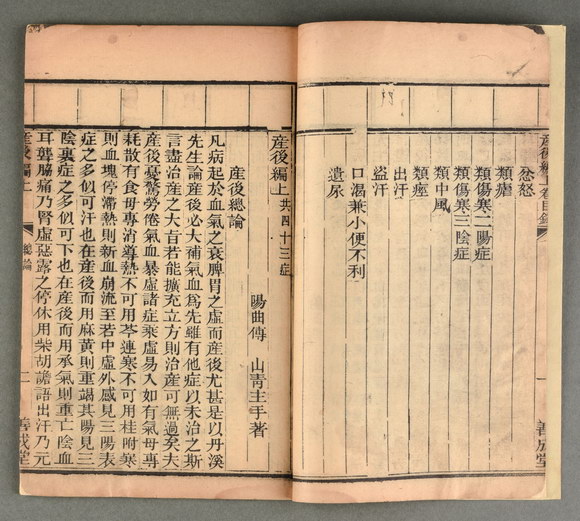 産後編上卷目錄
忿怒
類瘧
類傷寒二陽症
類傷寒三陰症
類中風
類痙
出汗
盜汗
口渴兼小便不利
遺尿
一
善成堂
産後編上 共四十三症
陽曲傅 山青主手著
産後總論
凡病起於血氣之衰脾胃之虛而産後尤甚是以丹溪
先生論産後必大補氣血爲先雖有他症以末治之斯
言盡治産之大旨若能擴充立方則治産可無過矣夫
産後憂驚勞倦氣血暴虛諸症乘虛易入如有氣毋專
耗散有食毋專消導熱不可用芩連寒不可用桂附寒
則血塊停滯熱則新血崩流至若中虛外感見三陽表
症之多似可汗也在産後而用麻黃則重竭其陽見三
陰裏症之多似可下也在産後而用承氣則重亡陰血
耳聾脇痛乃腎虛惡露之停休用柴胡譫語出汗乃元
産後編上
總論
二
善成堂